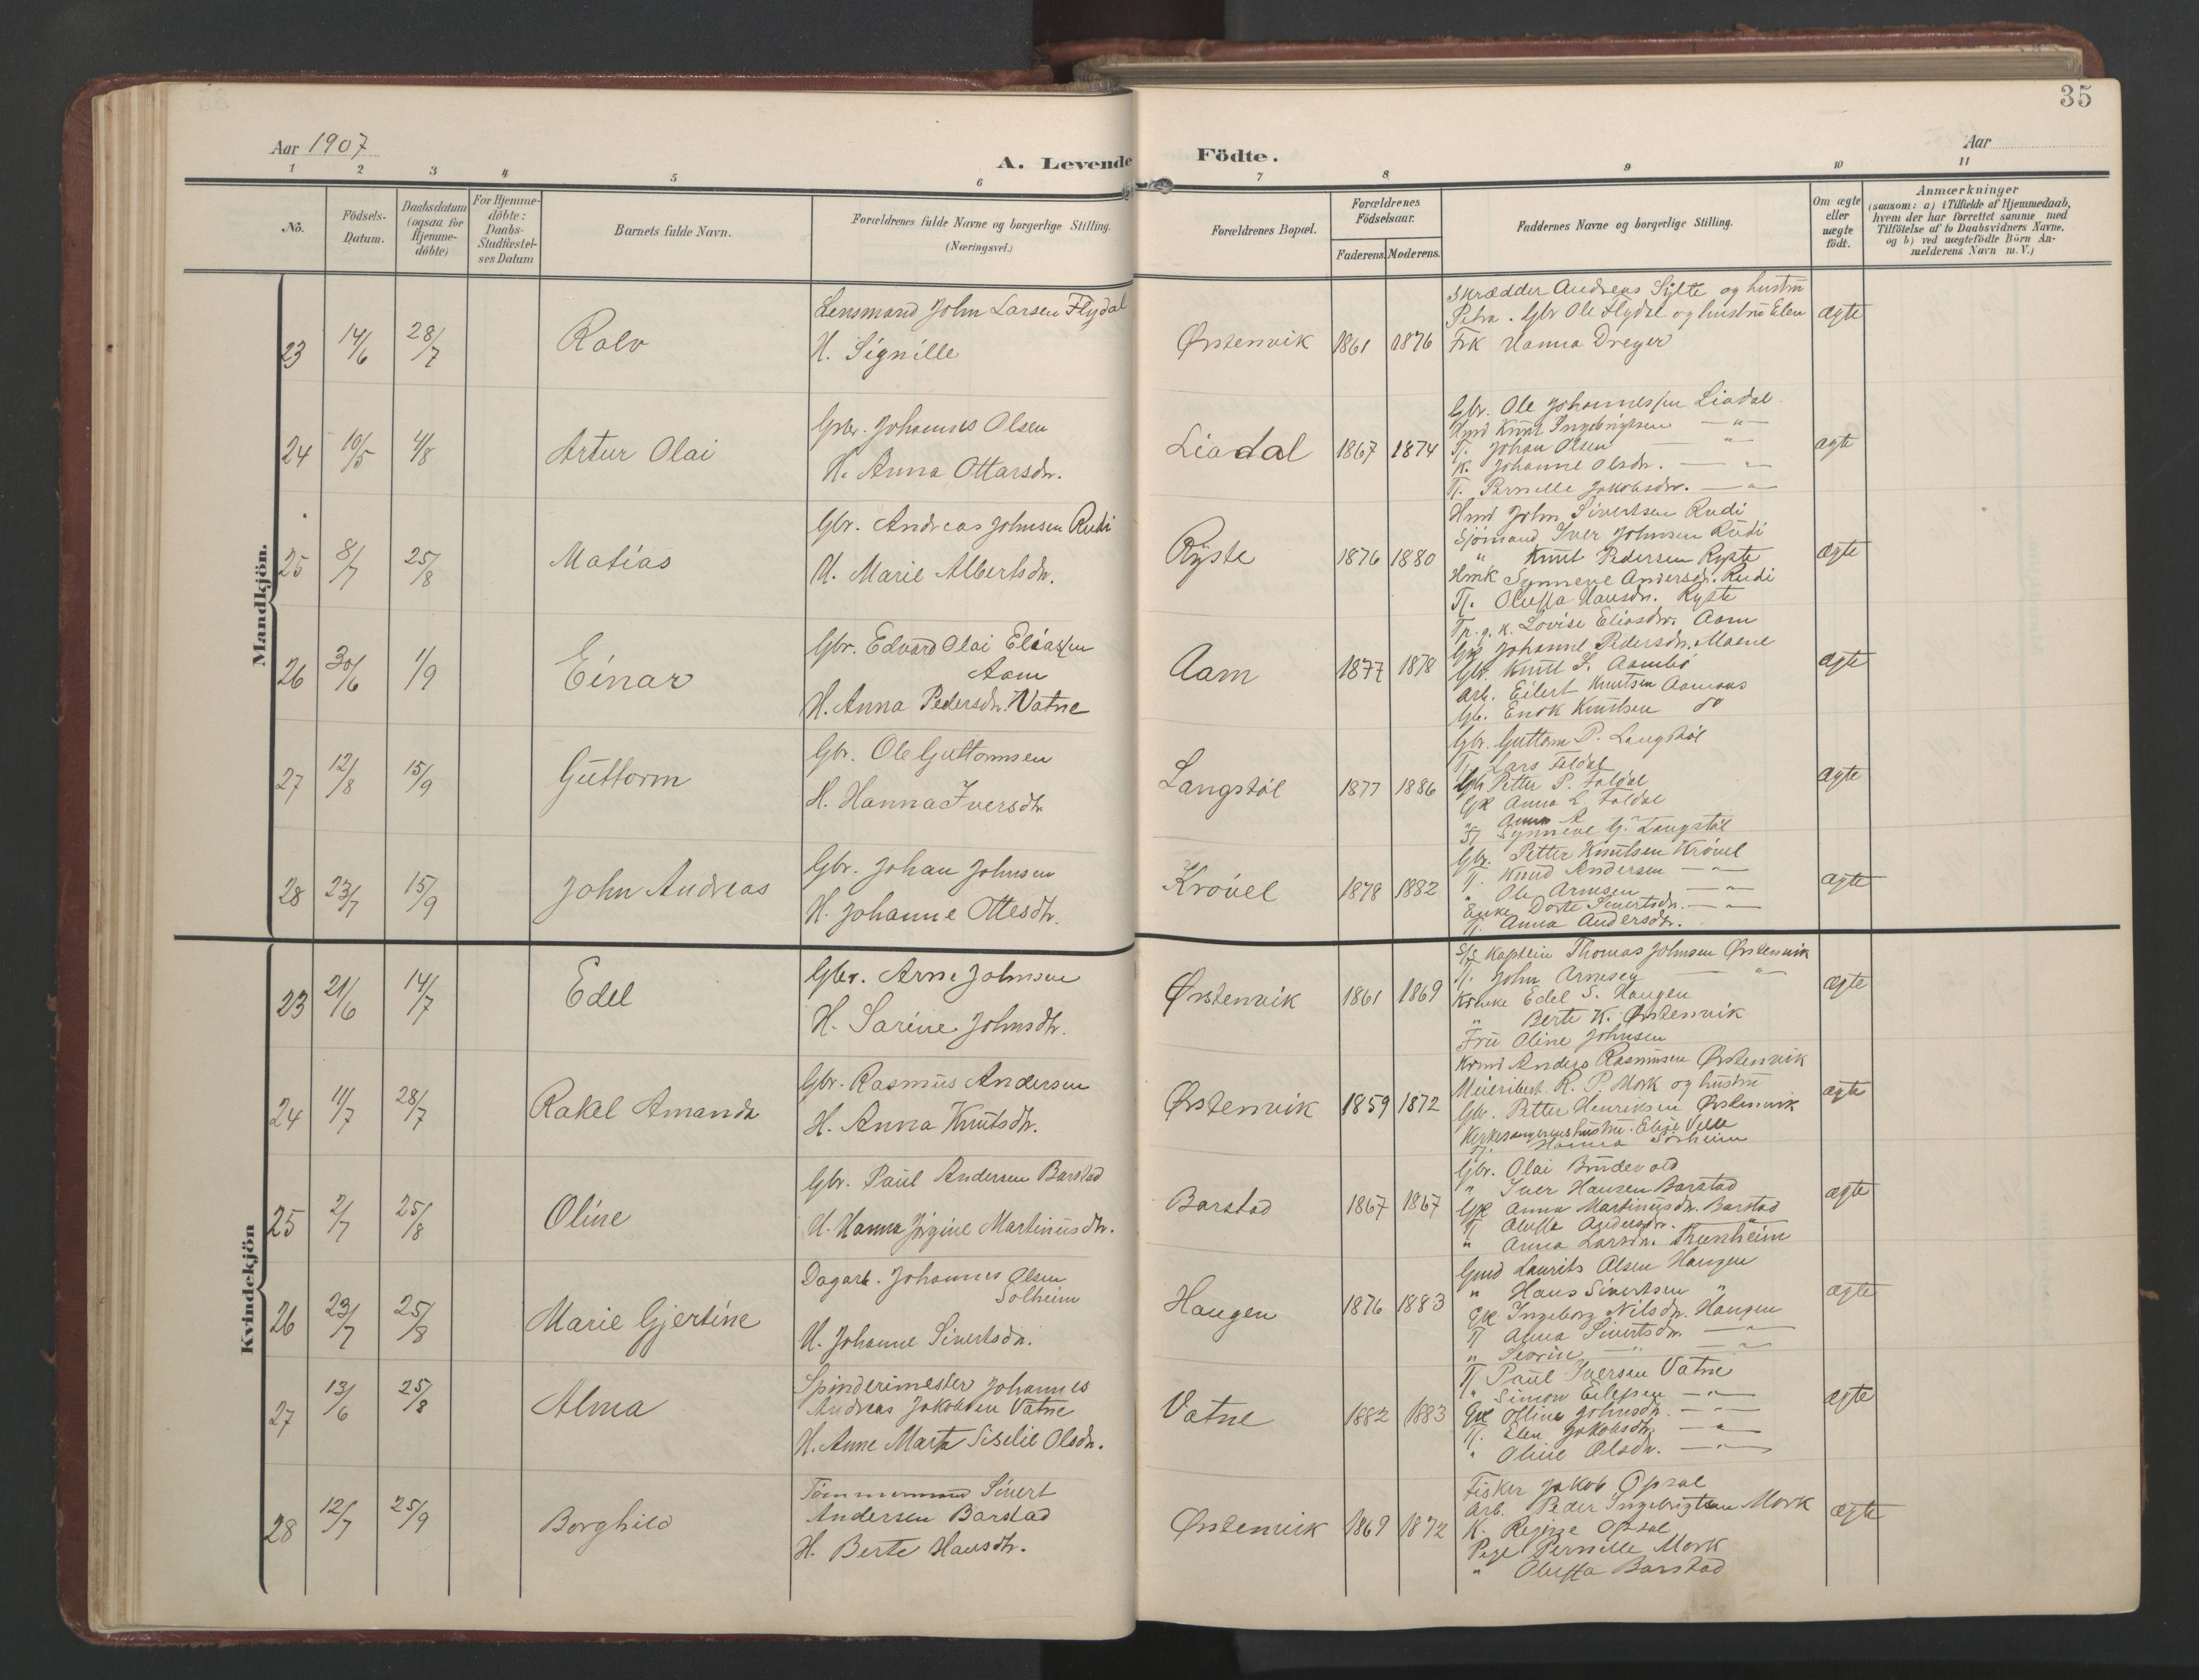 35
Aar 1907
A. Levende Födte.
Aar
1 2 3 4 5 6 7 8 9 10 11
No.
Födsels-Datum.
Daabsdatum (ogsaa for Hjemme-döbte)
For Hjemme-döbte: Daabs-Stadfæstel-ses Datum
Barnets fulde Navn.
Forældrenes fulde Navne og borgerlige Stilling. (Næringsvei.)
Forældrenes Bopæl.
Forældrenes Födselsaar.
Faderens. Moderens.
Faddernes Navne og borgerlige Stilling.
Om ægte eller uægte födt.
Anmærkninger
(saasom: a) i Tilfælde af Hjemmedaab, hvem der har forrettet samme med Tilföielse af to Daabsvidners Navne. og b) ved uægtefödte Börn An-melderens Navn m. V.)
Mandkjön.
23 14/6 28/7 Ralv
Lensmand John Larsen Flydal
H. Signille
Ørstenvik 1861 1876
Skrædder Andreas Sylte og hustru
Petra. Gbr Ole Flydal og hustru Elen
Frk Hanna Dreyer
ægte
24 10/5 4/8 Artur Olai
Gbr. Johannes Olsen
H. Anna Ottarsdtr.
Liadal 1867 1874
Gbr. Ole Johannessen Liadal
Knut Ingebrigtsen — " —
Tj. Johan Olsen — " —
K. Johanne Olsdtr. — " —
Tj. Pernille Jakobsdtr. — " —
ægte
25 8/7 25/8 Matias
Gbr. Andreas Johnsen Rudi
H. Marie Albertsdtr.
Ryste 1876 1880
John Sivertsen Rudi
Sjömand Iver Johnsen Rudi
" Knut Pedersen Ryste
Synneve Andersdtr. Rudi
Tj. Oluffa Hansdtr. Ryste
ægte
26 30/6 1/9 Einar
Gbr. Edvard Olai Eliassen
Aam
H. Anna Pedersdtr. Vatne
Aam 1877 1878
Lovise Eliasdtr. Aam
Gk Johanne Pedersdtr. Maene
Gbr. Knut S. Aambö
Arb. Eilert Knutsen Aamaas
Gbr. Enok Knutsen do
ægte
27 12/8 15/9 Guttorm
Gbr. Ole Guttormsen
H. Hanna Iversdtr
Langstöl 1877 1886
Gbr. Guttorm P. Langstöl
Tj. Lars Foldal
Gbr Petter P. Foldal
Gk Anna L. Foldal
" Anna R. "
Tj Synneve G. Langstöl
ægte
28 23/7 15/9 John Andreas
Gbr. Johan Johnsen
H. Johanne Ottesdtr.
Krövel 1878 1882
Gbr. Petter Knutsen Krövel
Tj. Knud Andersen — " —
" Ole Arnesen — " —
Enke Dorte Sivertsdtr. — " —
Tj. Anna Andersdtr.
ægte
Kvindekjön
23 21/6 14/7 Edel
Gbr. Arne Johnsen
H. Sarine Johnsdtr.
Ørstenvik 1861 1869
S/S Kaptein Thomas Johnsen Ørstenvik
Tj. John Arnesen — " —
Edel S. Haugen
" Berte K. Ørstenvik
Fru Oline Johnsen
ægte
24 11/7 28/7 Rakel Amanda
Gbr. Rasmus Andersen
H. Anna Knutsdtr.
Ørstenvik 1859 1872
Anders Rasmussen Ørstenvik
Meieribest. R. P. Mork og hustru
Gbr. Petter Henriksen Ørstenvik
Kirkesangerens hustru Elise Velle
Tj. Hanna Sörheim
ægte
25 2/7 25/8 Oline
Gbr. Paul Andersen Barstad
H. Hanna Jörgine Martinusdtr.
Barstad 1867 1867
Gbr. Olai Brudevold
" Iver Hansen Barstad
Gk Anna Martinusdtr. Barstad
Tj Oluffa Andersdtr. — " —
" Anna Larsdtr. Tunheim
ægte
26 23/7 25/8 Marie Gjertine
Dagarb. Johannes Olsen
Solheim
H. Johanne Sivertsdtr.
Haugen 1876 1883
Gmd Laurits Olsen Haugen
" Hans Sivertsen "
Gk Ingeborg Nilsdtr. Haugen
Tj Anna Sivertsdtr. — " —
" Severine " — " —
ægte
27 13/6 25/8 Alma
Spinderimester Johannes
Andreas Jakobsen Vatne
H. Anne Marta Siselie Olsdtr.
Vatne 1882 1883
Tj Paul Iversen Vatne
" Simon Eilefsen — " —
Gk Olline Johnsdtr. — " —
Tj. Elen Jakobsdtr. — " —
" Oline Olsdtr. — " —
ægte
28 12/7 25/9 Borghild
Tömmermand Sivert
Andersen Barstad
H. Berte Hansdtr.
Ørstenvik 1869 1872
Fisker Jakob Opsal
Arb. Peder Ingebrigtsen Mork
K. Regine Opsal
Pige Pernille Mork
" Oluffa Barstad
ægte